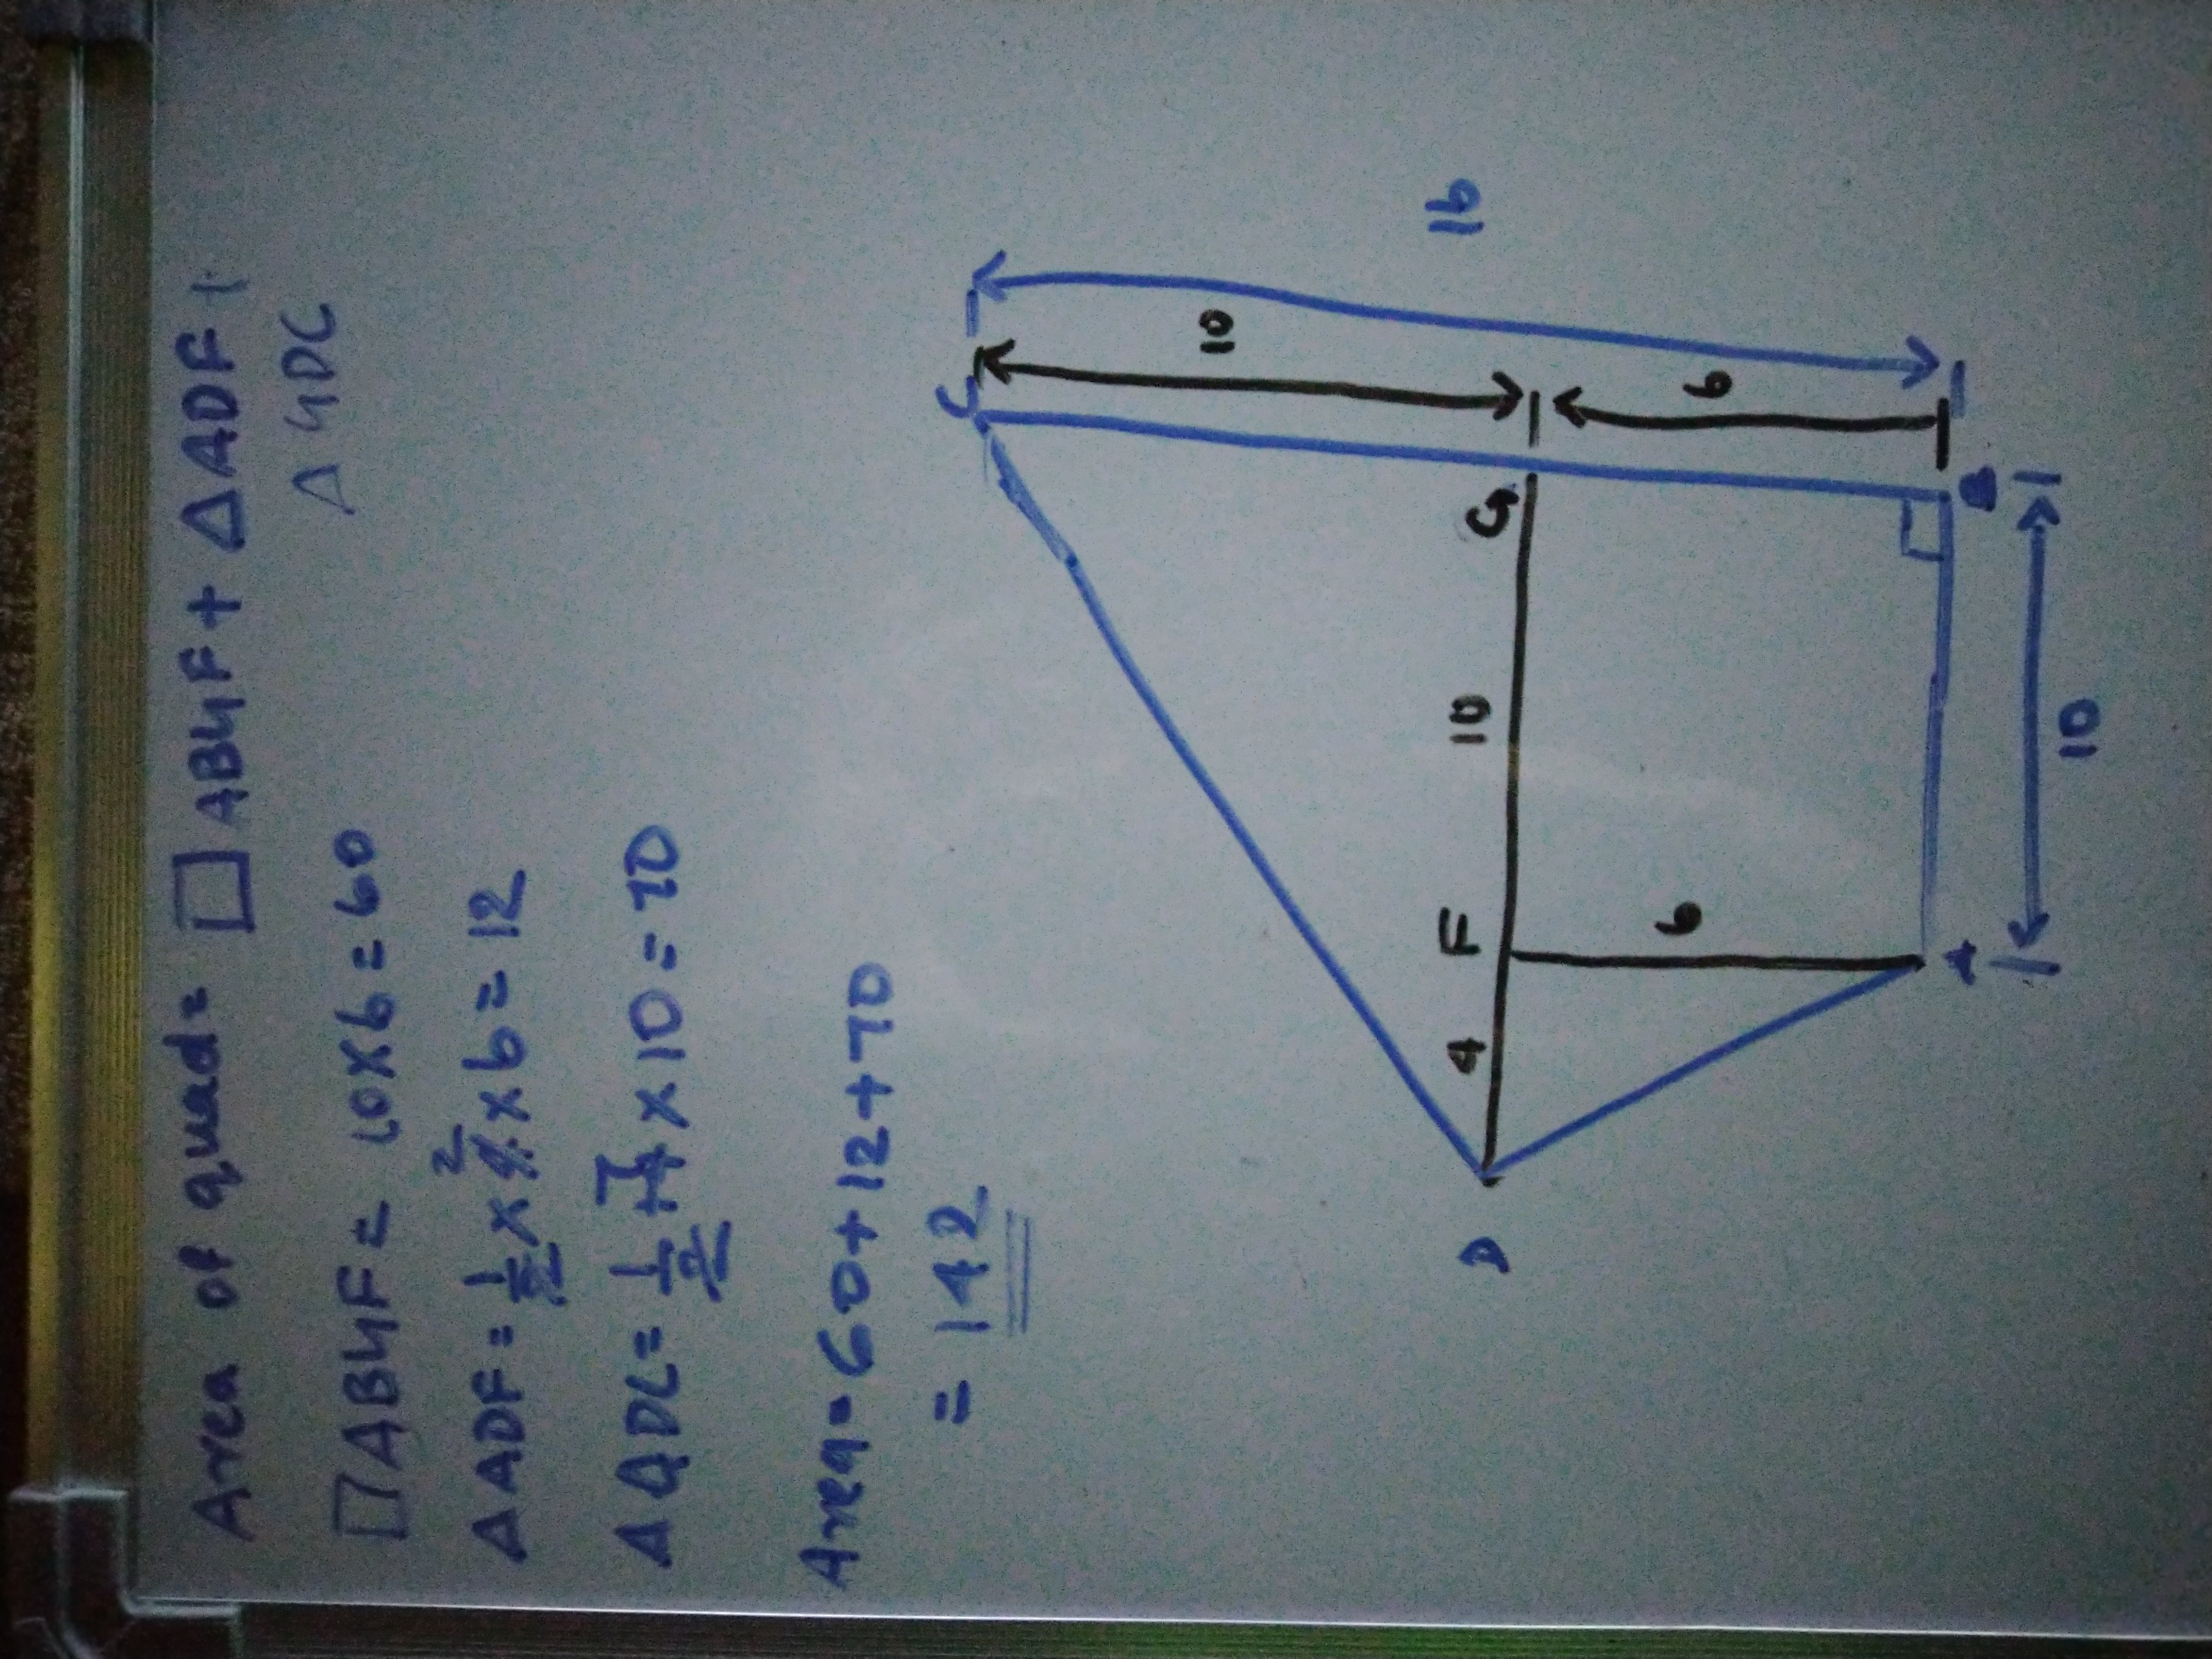 Area of quad = □ABGF + ΔADF +
ΔGDC
□ABGF = 10x6 = 60
ΔADF = 1/2 x 4 2 x 6 = 12
ΔGDC = 1/2 + 14 7 x 10 = 70
Area = 60 + 12 + 70
= 142
C
10
16
D
4
F
10
G
6
6
A
B
10